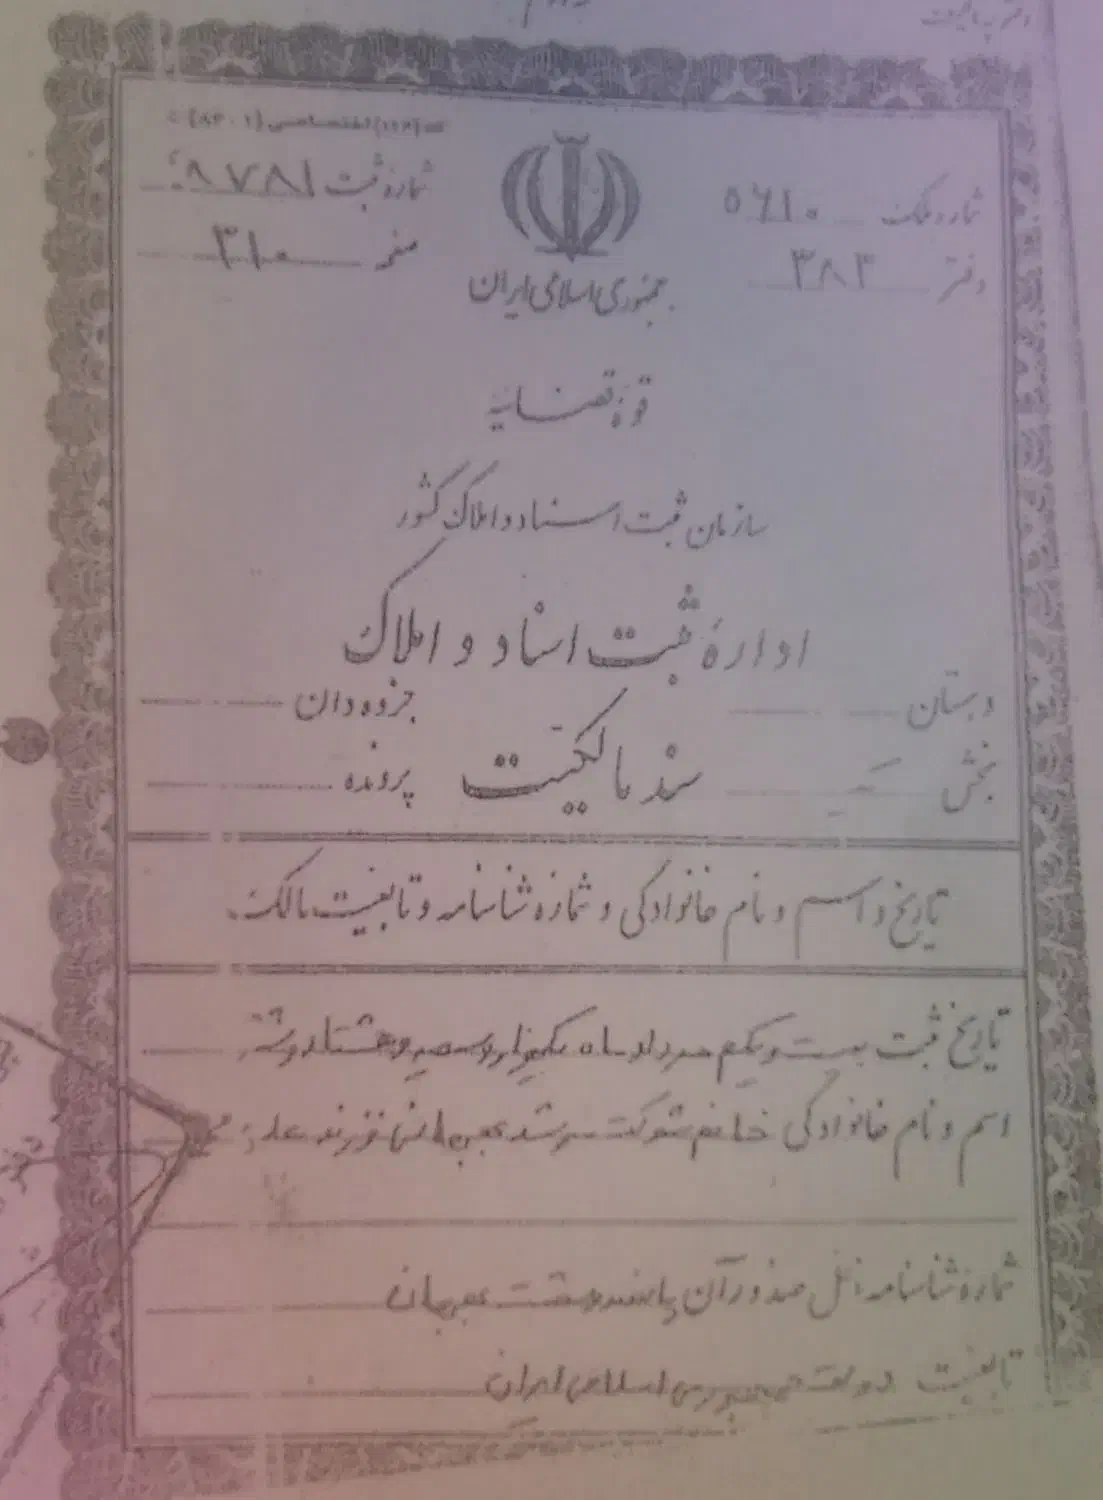 دفتر
شماره ملک ۵۶۱۰
شماره ثبت ۸۷۸۱
دفتر ۳۸۳
صفحه ۳۱۰
جمهوری اسلامی ایران
قوه قضائیه
سازمان ثبت اسناد و املاک کشور
اداره ثبت اسناد و املاک
دبستان
جزوه دان
بخش
سند مالکیت
پرونده
تاریخ و اسم و نام خانوادگی و شماره شناسنامه و تابعیت مالک
تاریخ ثبت بیست و یکم مرداد ماه یکهزار و سیصد و هشتاد و
اسم و نام خانوادگی خانم شوکت فرزند
شماره شناسنامه محل صدور آن پانصد و هشت
تابعیت دولت جمهوری اسلامی ایران